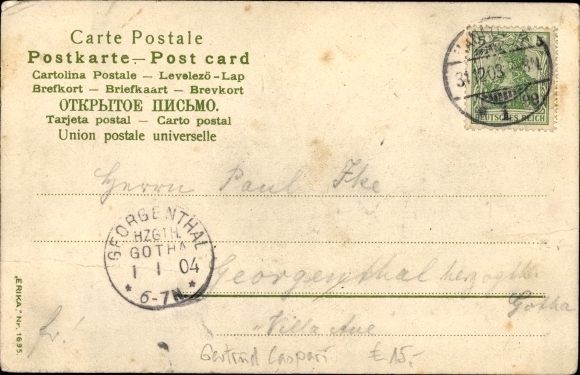 Carte Postale
Postkarte — Post card
Cartolina Postale — Levelező-Lap
Brefkort — Briefkaart — Brevkort
ОТКРЫТОЕ ПИСЬМО.
Tarjeta postal — Carto postal
Union postale universelle
5
31.12.03
DEUTSCHES REICH
Herrn Paul
GEORGENTHAL
HZGTH.
GOTHA
1 1 04
* 6-7N *
Georgenthal herzogth.
Gotha
fr!
Villa Aue
Gertrud Caspari € 15.-
"ERIKA" Nr. 1695